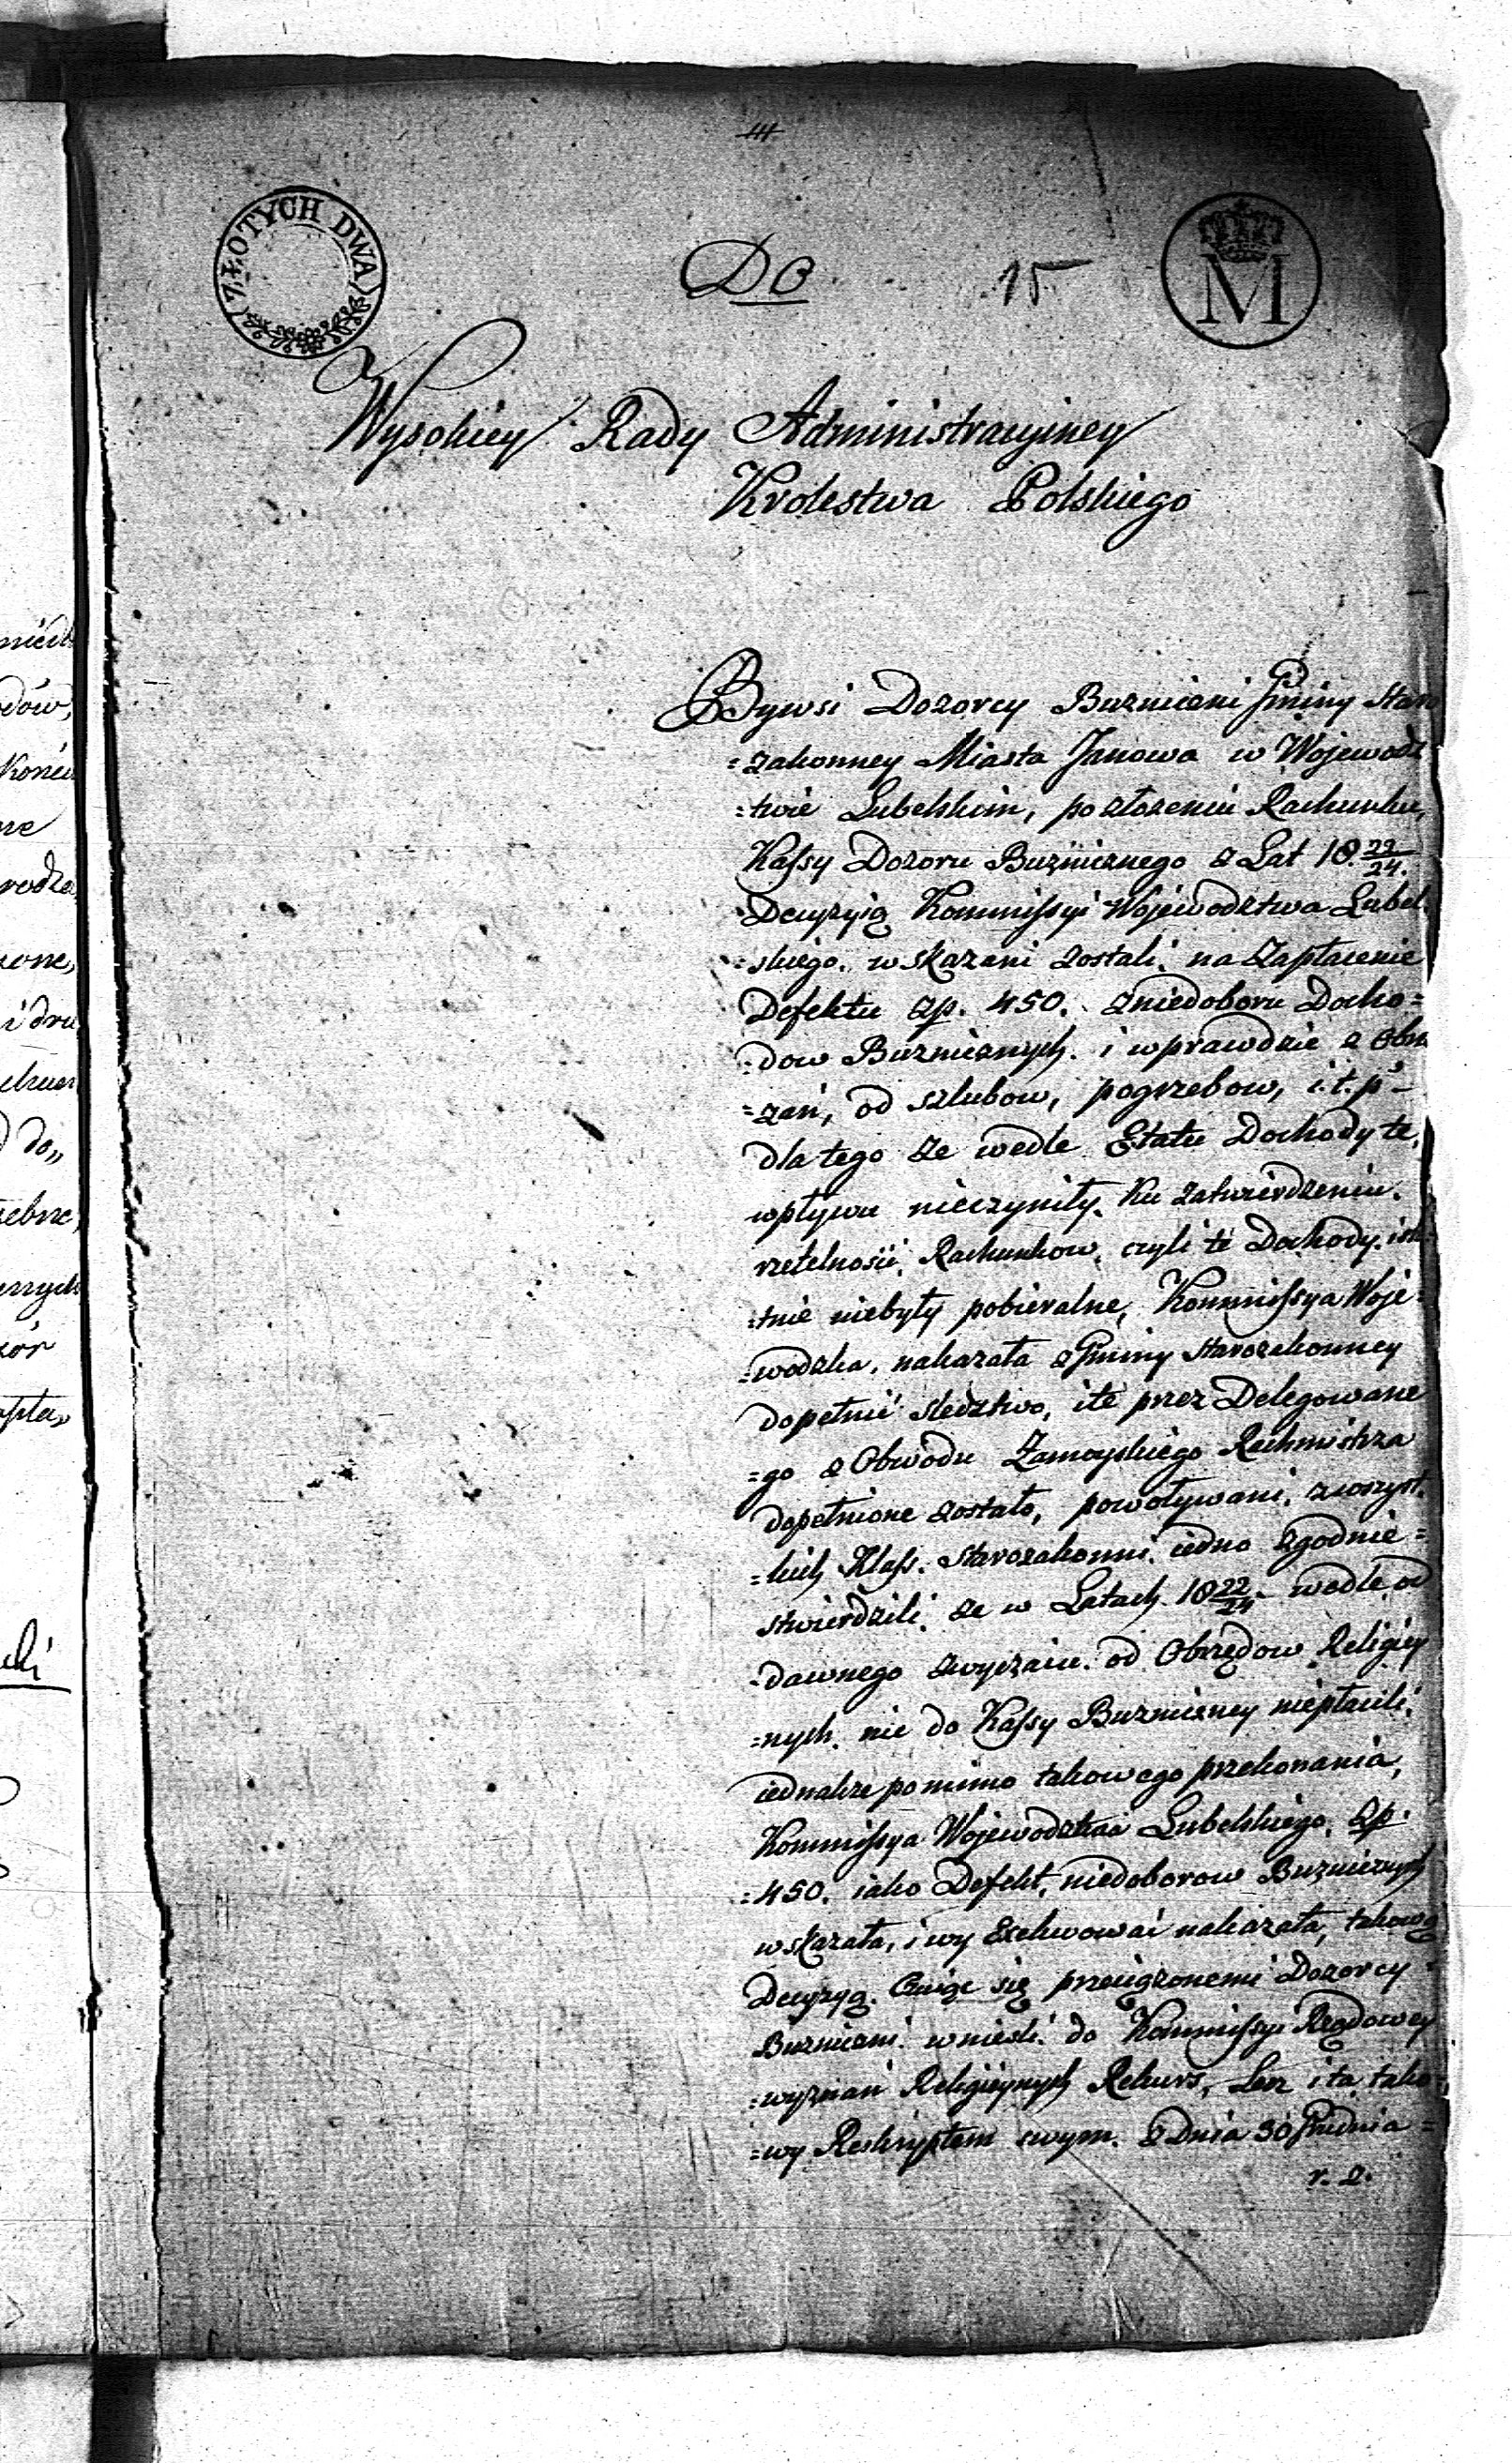 ZŁOTYCH DWA
M
DO
15
Wysokiey Rady Administracyiney
Krolestwa Polskiego
Bywsi Dozorcy Buzniczni Gminy Staro
=zakonney Miasta Janowa w Wojewodz
=twie Lubelskim, po złozeniu Rachunku,
Kassy Dozoru Buzniznego z Lat 18 22/24.
Decyzyią Kommissyi Wojewodztwa Lubel
=skiego. wskazani zostali. na Zapłacenie
Defektu zp. 450. z niedoboru Docho=
=dow Buznicznych. i w prawdzie z Obrz
=zań, od szlubow, pogrzebow, i.t.p –
dla tego ze wedle Etatu Dochody te,
wpływu nieczyniły. Ku zatwierdzeniu.
rzetelnosci, Rachunkow, czyli te Dochody. ist
=tnie niebyły pobieralne, Kommissya Woje
=wodzka, nakazała z Gminy Starozakonney
dopełnić sledztwo, i te przez Delegowane
=go z Obwodu Zamoyskiego Rachmistrza
dopełnione zostało, powoływani. z wszyst.
=kich Klass. Starozakonni. iedno zgodnie=
stwierdzili. ze w Latach 18 22/24 wedle od
=dawnego zwyczaiu. od Obrzędow Religiey
=nych. nic do Kassy Buzniczney niepłacili.
iednakze pomimo takowego przekonania,
Kommissya Wojewodztwa Lubelskiego, zp.
=450. iako Defekt, niedoborow Buznicznych
wskazała, i wy Exekwować nakazała, takową
Decyzyą. Czuiąc się przeciązonemi Dozorcy=
Buzniczni. wniesli. do Kommissyi Rządowey
=wyznań Religiynych Rekurs, Lecz i ta tako=
=wy Reskryptem swym. z Dnia 30 Grudnia=
r. z.